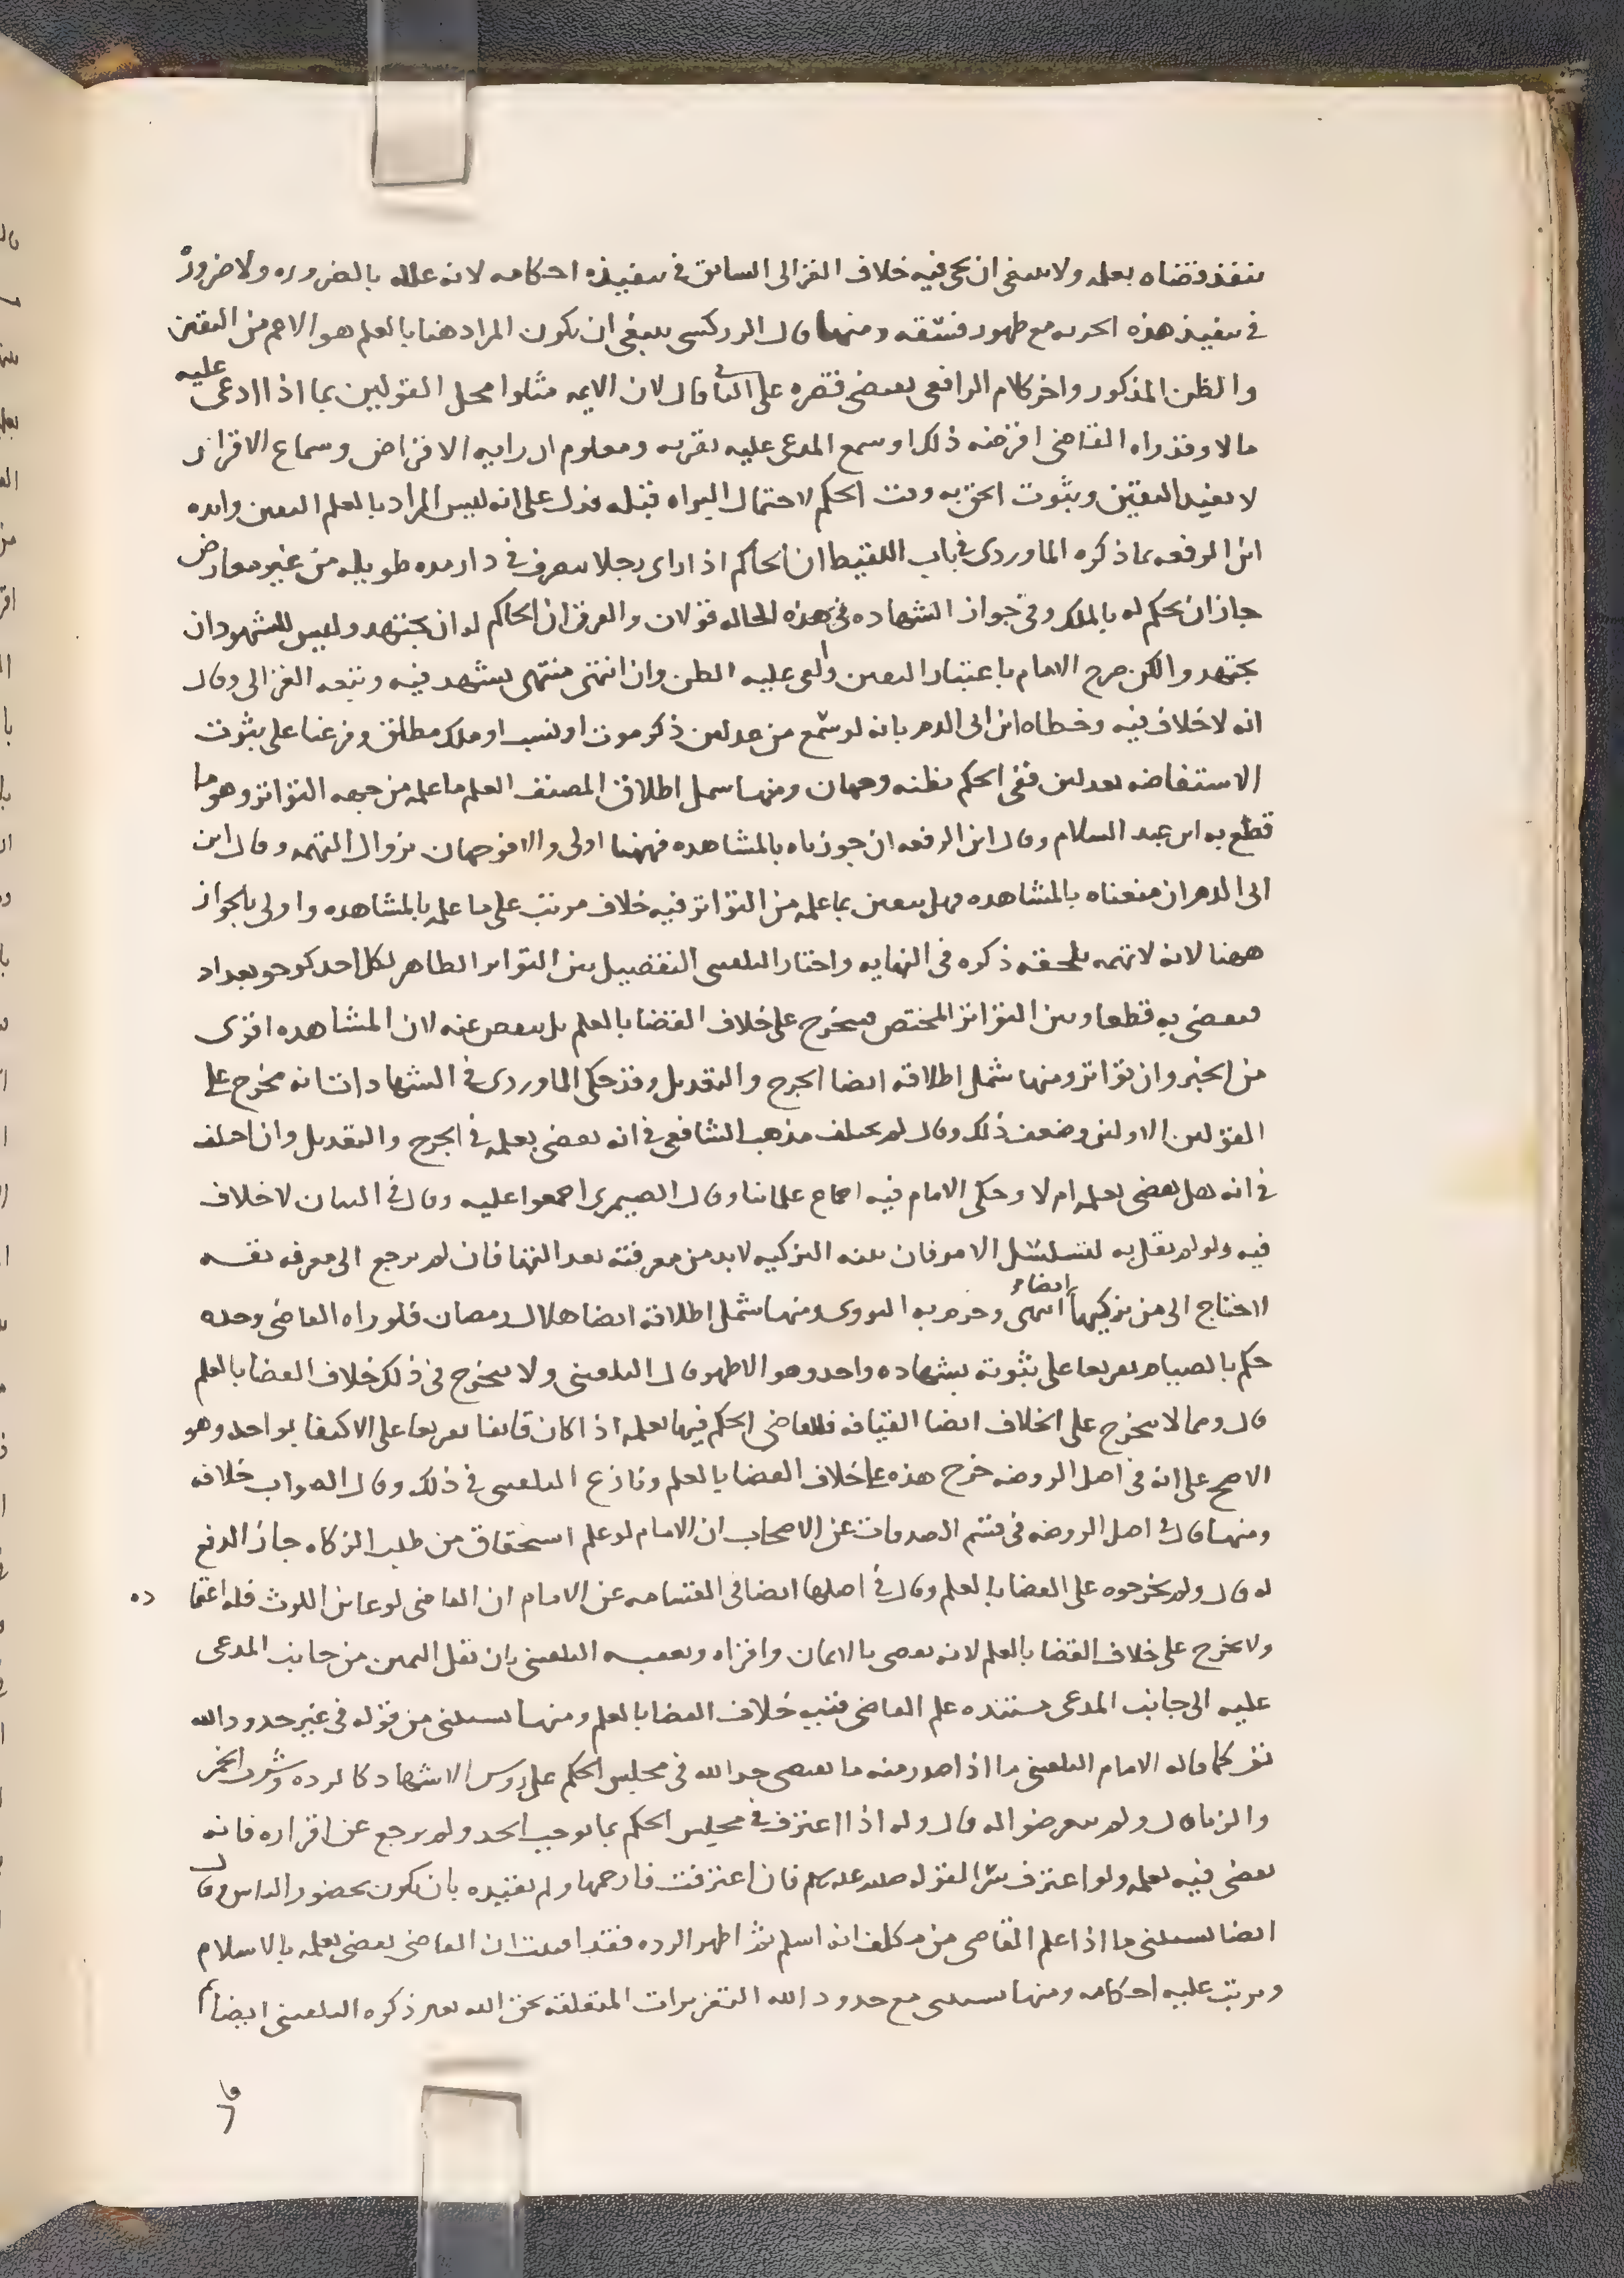 ننفذ قضاه بعلمه ولا ينبغي ان يجي فيه خلاف الغزالي السابق في تنفيذه احكامه لانه علله بالضروره ولا ضرورة
في تنفيذ هذه الجزيه مع ظهور فسقه ومنها قال الزركشي ينبغي ان يكون المراد هنا بالعلم هو الاعم من اليقين
والظن المذكور واخر كلام الرافعي يقتضي قصره على الثاني قال لان الايمه مثلوا محل القولين بما اذا ادعى عليه
مالا وقد راه القاضي اقرضه ذلك او سمع المدعى عليه يقر به ومعلوم ان رايه الاقراض وسماع الاقرار
لا يفيد اليقين وبثوت الحق به وقت الحكم لاحتمال البراه قبله فدل على انه ليس المراد بالعلم اليقين وايده
ابن الرفعه بما ذكره الماوردي في باب اللقيط ان الحاكم اذا راى رجلا يتصرف في دار مده طويله من غير معارض
جاز ان يحكم له بالملك وفي جواز الشهاده في هذه الحاله قولان والفرق ان الحاكم له ان يجتهد وليس للشهود ان
يجتهد والكن صرح الامام باعتبار اليقين والغى عليه الظن وان انتهى منتهى يشهد فيه وتبعه الغزالي وقال
انه لا خلاف فيه وخطاه ابن ابي الدم بانه لو سمع من عدلين ذكر موت او نسب او ملك مطلق وفرعنا على بثوت
الاستفاضه بعدلين ففي الحكم بظنه وجهان ومنها شمل اطلاق المصنف العلم ما علمه من جهه التواتر وهو ما
قطع به ابن عبد السلام وقال ابن الرفعه ان جوزناه بالمشاهده فههنا اولى والا فوجهان بزوال التهمه وقال ابن
ابي الدم ان منعناه بالمشاهده فهل يتعين بما علمه من التواتر فيه خلاف مرتب على ما علمه بالمشاهده واولى بالجواز
ههنا لانه لا تهمه تلحقه ذكره في النهايه واختار البلقيني التفصيل بين التواتر الظاهر لكل احد كوجود بغداد
فيقضي به قطعا وبين التواتر المختص فيتخرج على خلاف القضا بالعلم بل ينقص عنه لان المشاهده اقوى
من الخبر وان تواتر ومنها شمل اطلاقه ايضا الجرح والتعديل وقد حكى الماوردي في الشهادات انه مخرج على
القولين الاولين وضعف ذلك وقال لم يختلف مذهب الشافعي في انه يقضي بعلمه في الجرح والتعديل وان اختلف
في انه هل يقضي بعلمه ام لا وحكى الامام فيه اجماع علماينا وقال الصيمري اجمعوا عليه وقال في البيان لا خلاف
فيه ولو لم يقل به لتسلسل الامر فان بينه التزكيه لا بد من معرفته بعدالتها فان لم يرجع الى معرفه نفسه
لاحتاج الى من يزكيها ايضا انتهى وجزم به النووي ومنها شمل اطلاقه ايضا هلال رمضان فلو راه القاضي وحده
حكم بالصيام تفريعا على بثوته بشهاده واحد وهو الاظهر قال البلقيني ولا يتخرج في ذلك خلاف القضا بالعلم
قال ومما لا يتخرج على الخلاف ايضا القيافه فللقاضي الحكم فيها بعلمه اذا كان قايفا تفريعا على الاكتفا بواحد وهو
الاصح على انه في اصل الروضه خرج هذه على خلاف القضا بالعلم ونازع البلقيني في ذلك وقال الصواب خلافه
ومنها قال في اصل الروضه في قسم الصدقات عن الاصحاب ان الامام لو علم استحقاق من طلب الزكاه جاز الدفع
له قال ولم يخرجوه على القضا بالعلم وقال في اصلها ايضا في القسامه عن الامام ان القاضي لو عاين اللوث فله اعتما ده
ولا يخرج على خلاف القضا بالعلم لانه يقضي بالايمان واقراه وتعقبه البلقيني بان نقل اليمين من جانب المدعى
عليه الى جانب المدعي مستنده علم القاضي فيثب خلاف القضا بالعلم ومنها يستثنى من قوله في غير حدود الله
تعر كما قاله الامام البلقيني ما اذا صدر منه ما يقتضي حد الله في مجلس الحكم على روس الاشهاد كالرده وشرب الخمر
والزنا قال ولم يتعرضوا له قال وله اذا اعترف في مجلس الحكم بما يوجب الحد ولم يرجع عن اقراره فانه
يقضي فيه بعلمه ولو اعترف سرا لقوله صلى الله عليه وسلم فان اعترفت فارجمها ولم يقيده بان يكون بحضور الناس وقال
ايضا يستثنى ما اذا علم القاضي من مكلف انه اسلم ثم اظهر الرده فقد افتيت ان القاضي يقضي بعلمه بالاسلام
ويرتب عليه احكامه ومنها يستثنى مع حدود الله التعزيرات المتعلقه بحق الله تعر ذكره البلقيني ايضا